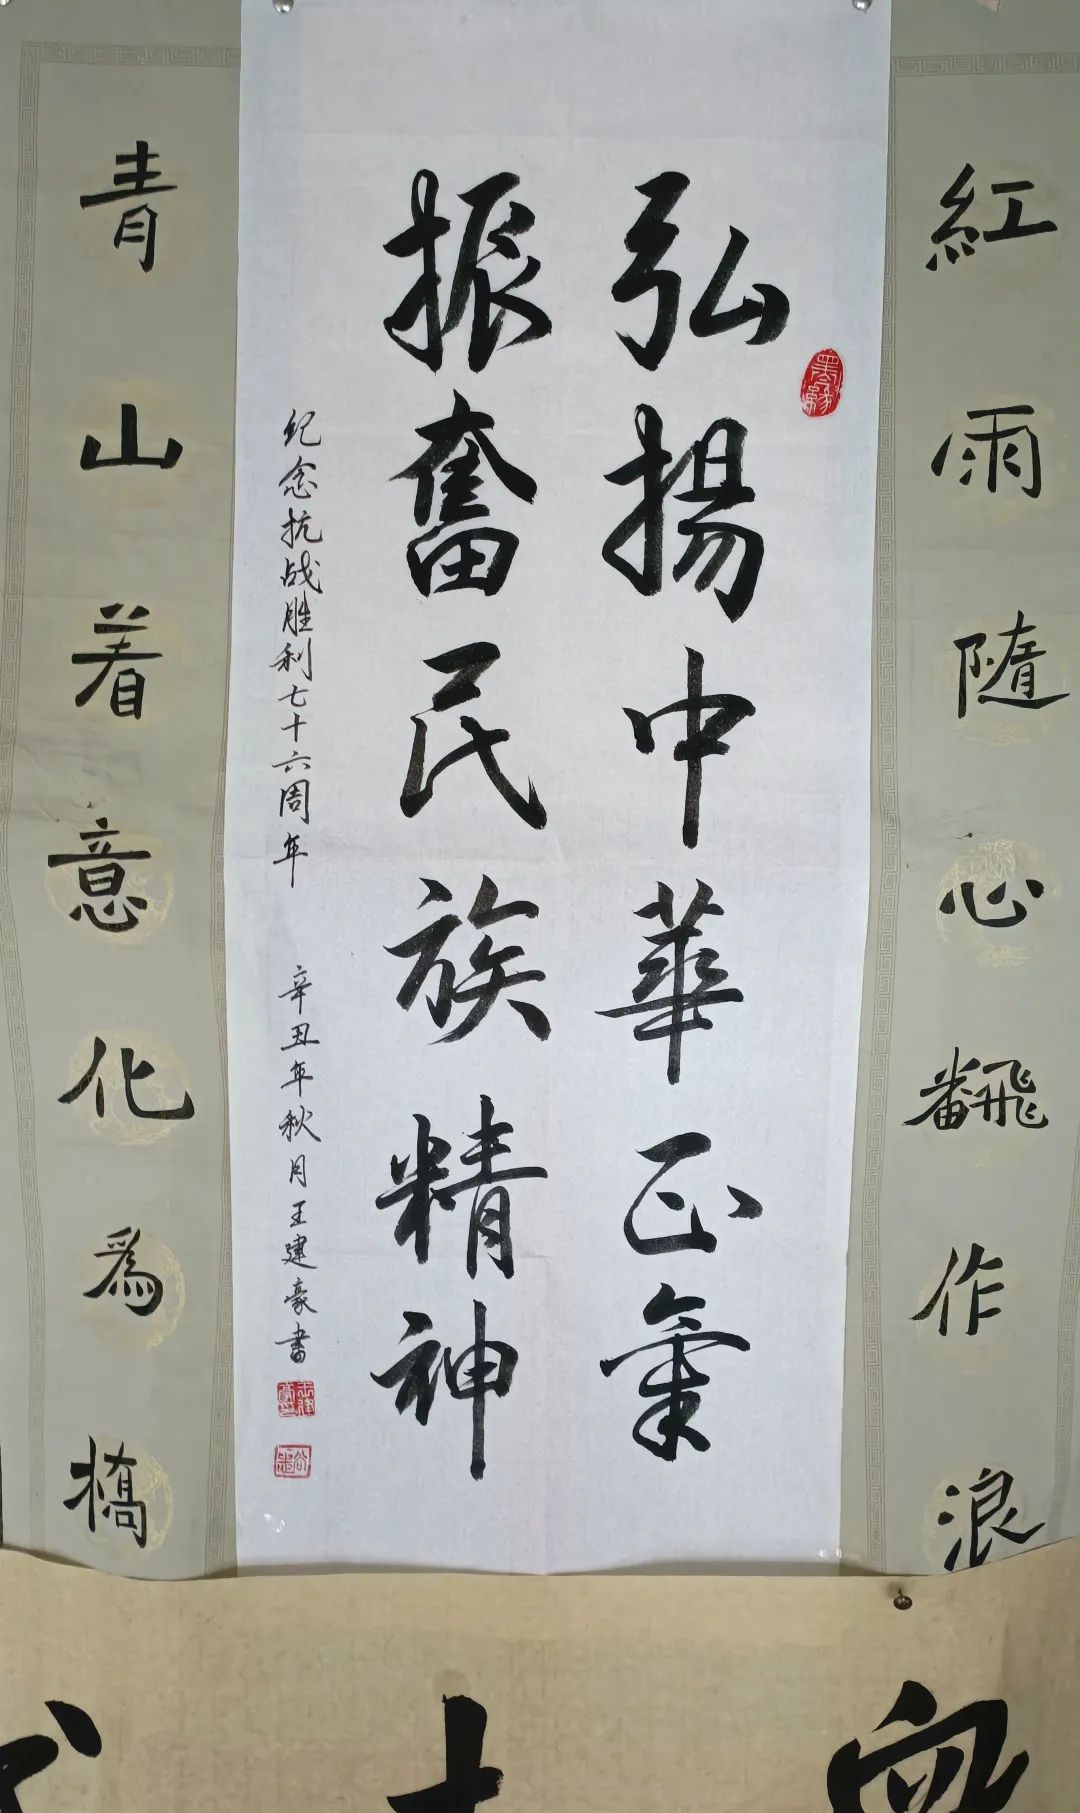 紅雨隨心翻作浪
弘揚中華正氣
振奮民族精神
纪念抗战胜利七十六周年 辛丑年秋月王建豪書
青山着意化爲橋